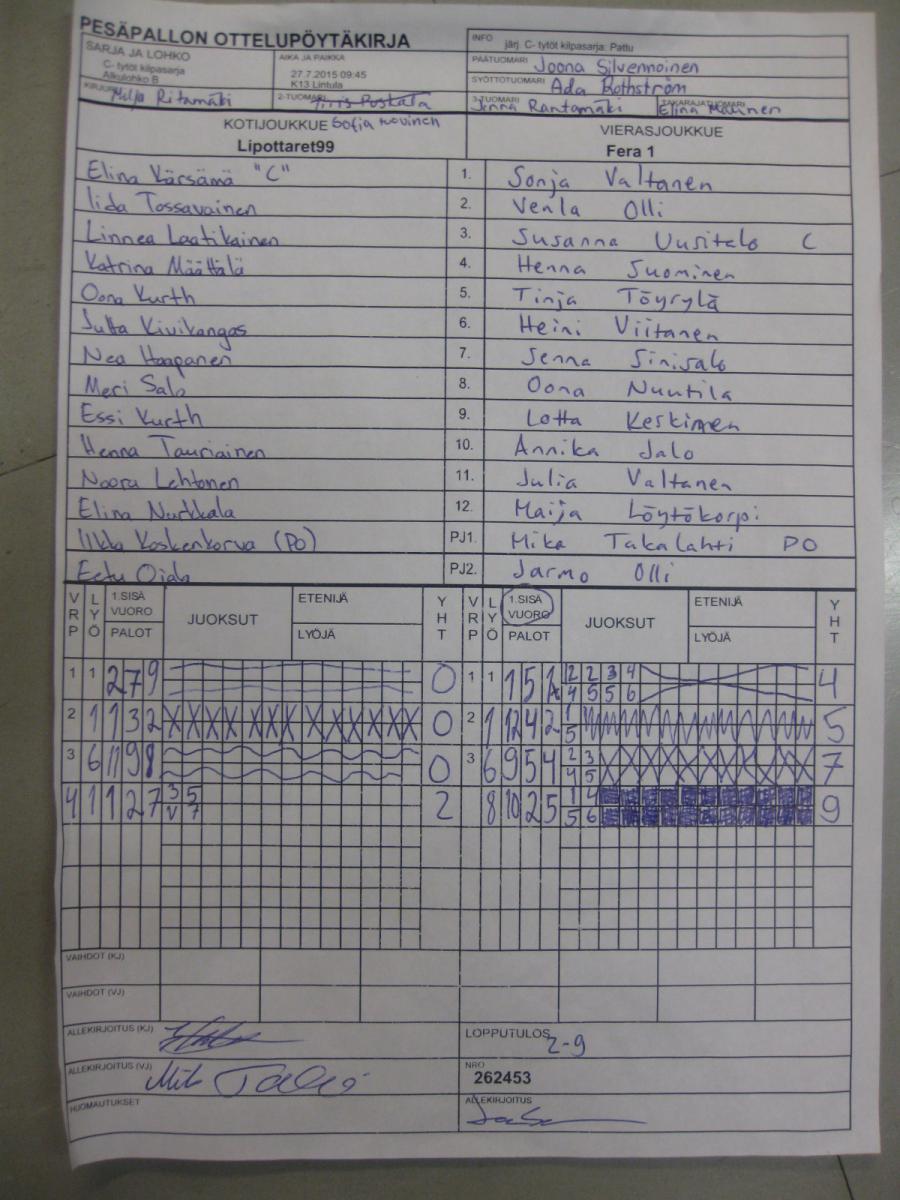 PESÄPALLON OTTELUPÖYTÄKIRJA
INFO järj. C- tytöt kilpasarja: Pattu
SARJA JA LOHKO
C- tytöt kilpasarja
Alkulohko B
AIKA JA PAIKKA
27.7.2015 09:45
K13 Lintula
PÄÄTUOMARI Joona Silvennoinen
SYÖTTÖTUOMARI Ada Rothström
KIRJURI Milja Ritamäki
2-TUOMARI Iiris Postala
3-TUOMARI Jenna Rantamäki
TAKARAJATUOMARI Elina Mäkinen
KOTIJOUKKUE Sofia
Lipottaret99
VIERASJOUKKUE
Fera 1
Elina Kärsämä "C" 1. Sonja Valtanen
Iida Tossavainen 2. Venla Olli
Linnea Laatikainen 3. Susanna Uusitalo C
Katrina Määttälä 4. Henna Suominen
Oona Kurth 5. Tinja Töyrylä
Jutta Kivikangas 6. Heini Viitanen
Nea Haapanen 7. Jenna Sinisalo
Meri Salo 8. Oona Nuutila
Essi Kurth 9. Lotta Keskinen
Henna Tauriainen 10. Annika Jalo
Noora Lehtonen 11. Julia Valtanen
Elina Nurkkala 12. Maija Löytökorpi
Ilkka Koskenkorva (PO) PJ1. Mika Takalahti PO
Eetu Ojala PJ2. Jarmo Olli
VRP LYÖ 1.SISÄ VUORO PALOT JUOKSUT ETENIJÄ LYÖJÄ YHT VRP LYÖ 1.SISÄ VUORO PALOT JUOKSUT ETENIJÄ LYÖJÄ YHT
1 1 2 7 9 0 1 1 1 5 2 2 3 4 4
4 5 5 6
2 1 1 3 2 0 2 1 12 4 2 1 5
5
3 6 11 9 8 0 3 6 9 5 4 2 3 7
4 5
4 1 1 2 7 3 5 2 8 10 2 5 1 4 9
V 7 5 6
VAIHDOT (KJ)
VAIHDOT (VJ)
ALLEKIRJOITUS (KJ)
LOPPUTULOS 2-9
ALLEKIRJOITUS (VJ)
NRO
262453
HUOMAUTUKSET
ALLEKIRJOITUS